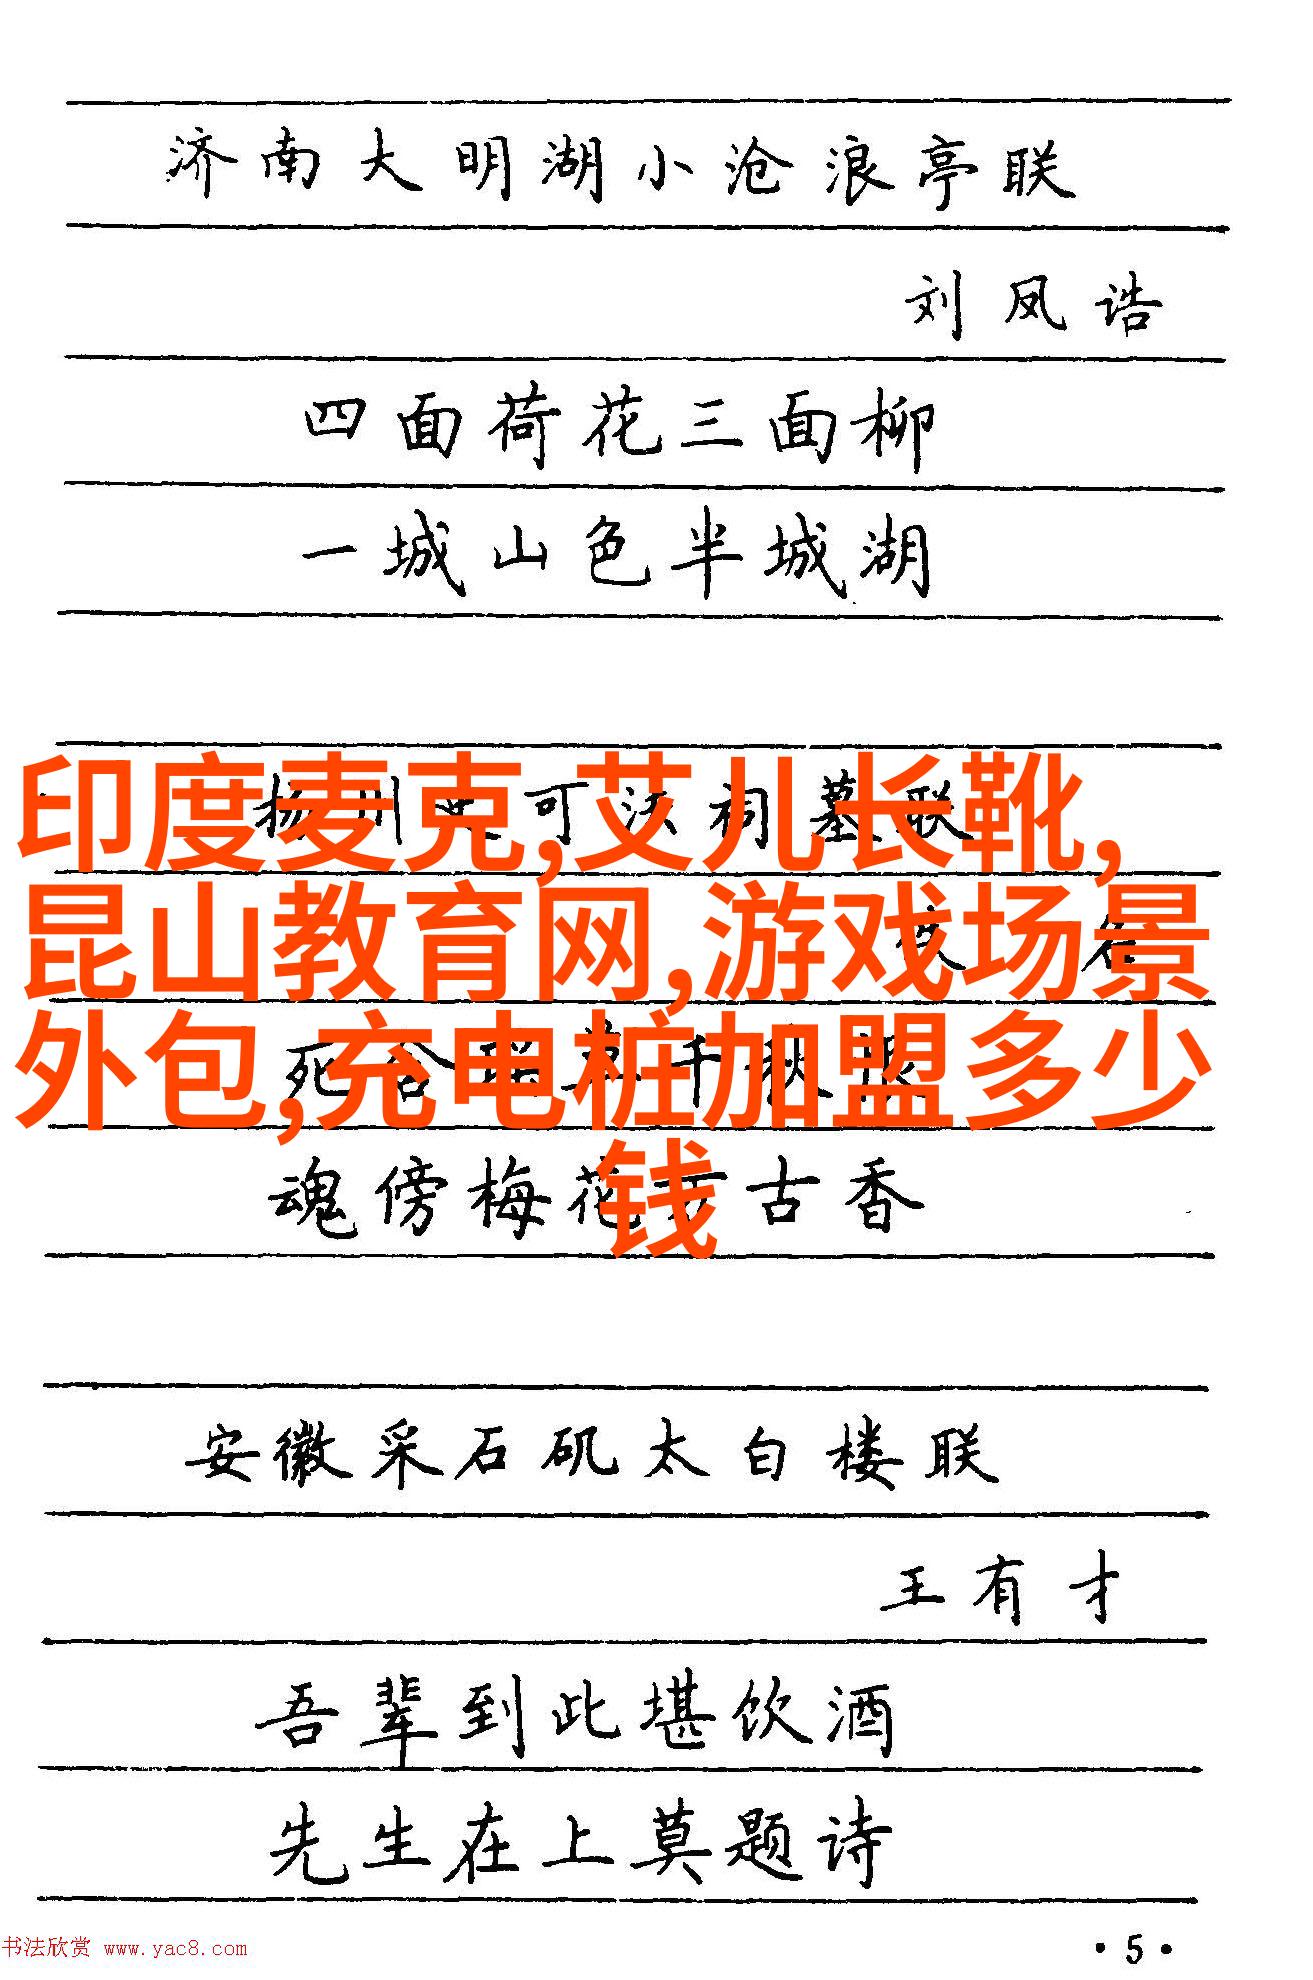 济南大明湖小沧浪亭联
刘凤诰
四面荷花三面柳
一城山色半城湖
印度麦克,艾儿长靴,
昆山教育网,游戏场景
外包,充电桩加盟多少
钱
魂傍梅花 古香
安徽采石矶太白楼联
王有才
吾辈到此堪饮酒
先生在上莫题诗
书法欣赏 www.yac8.com
·5·